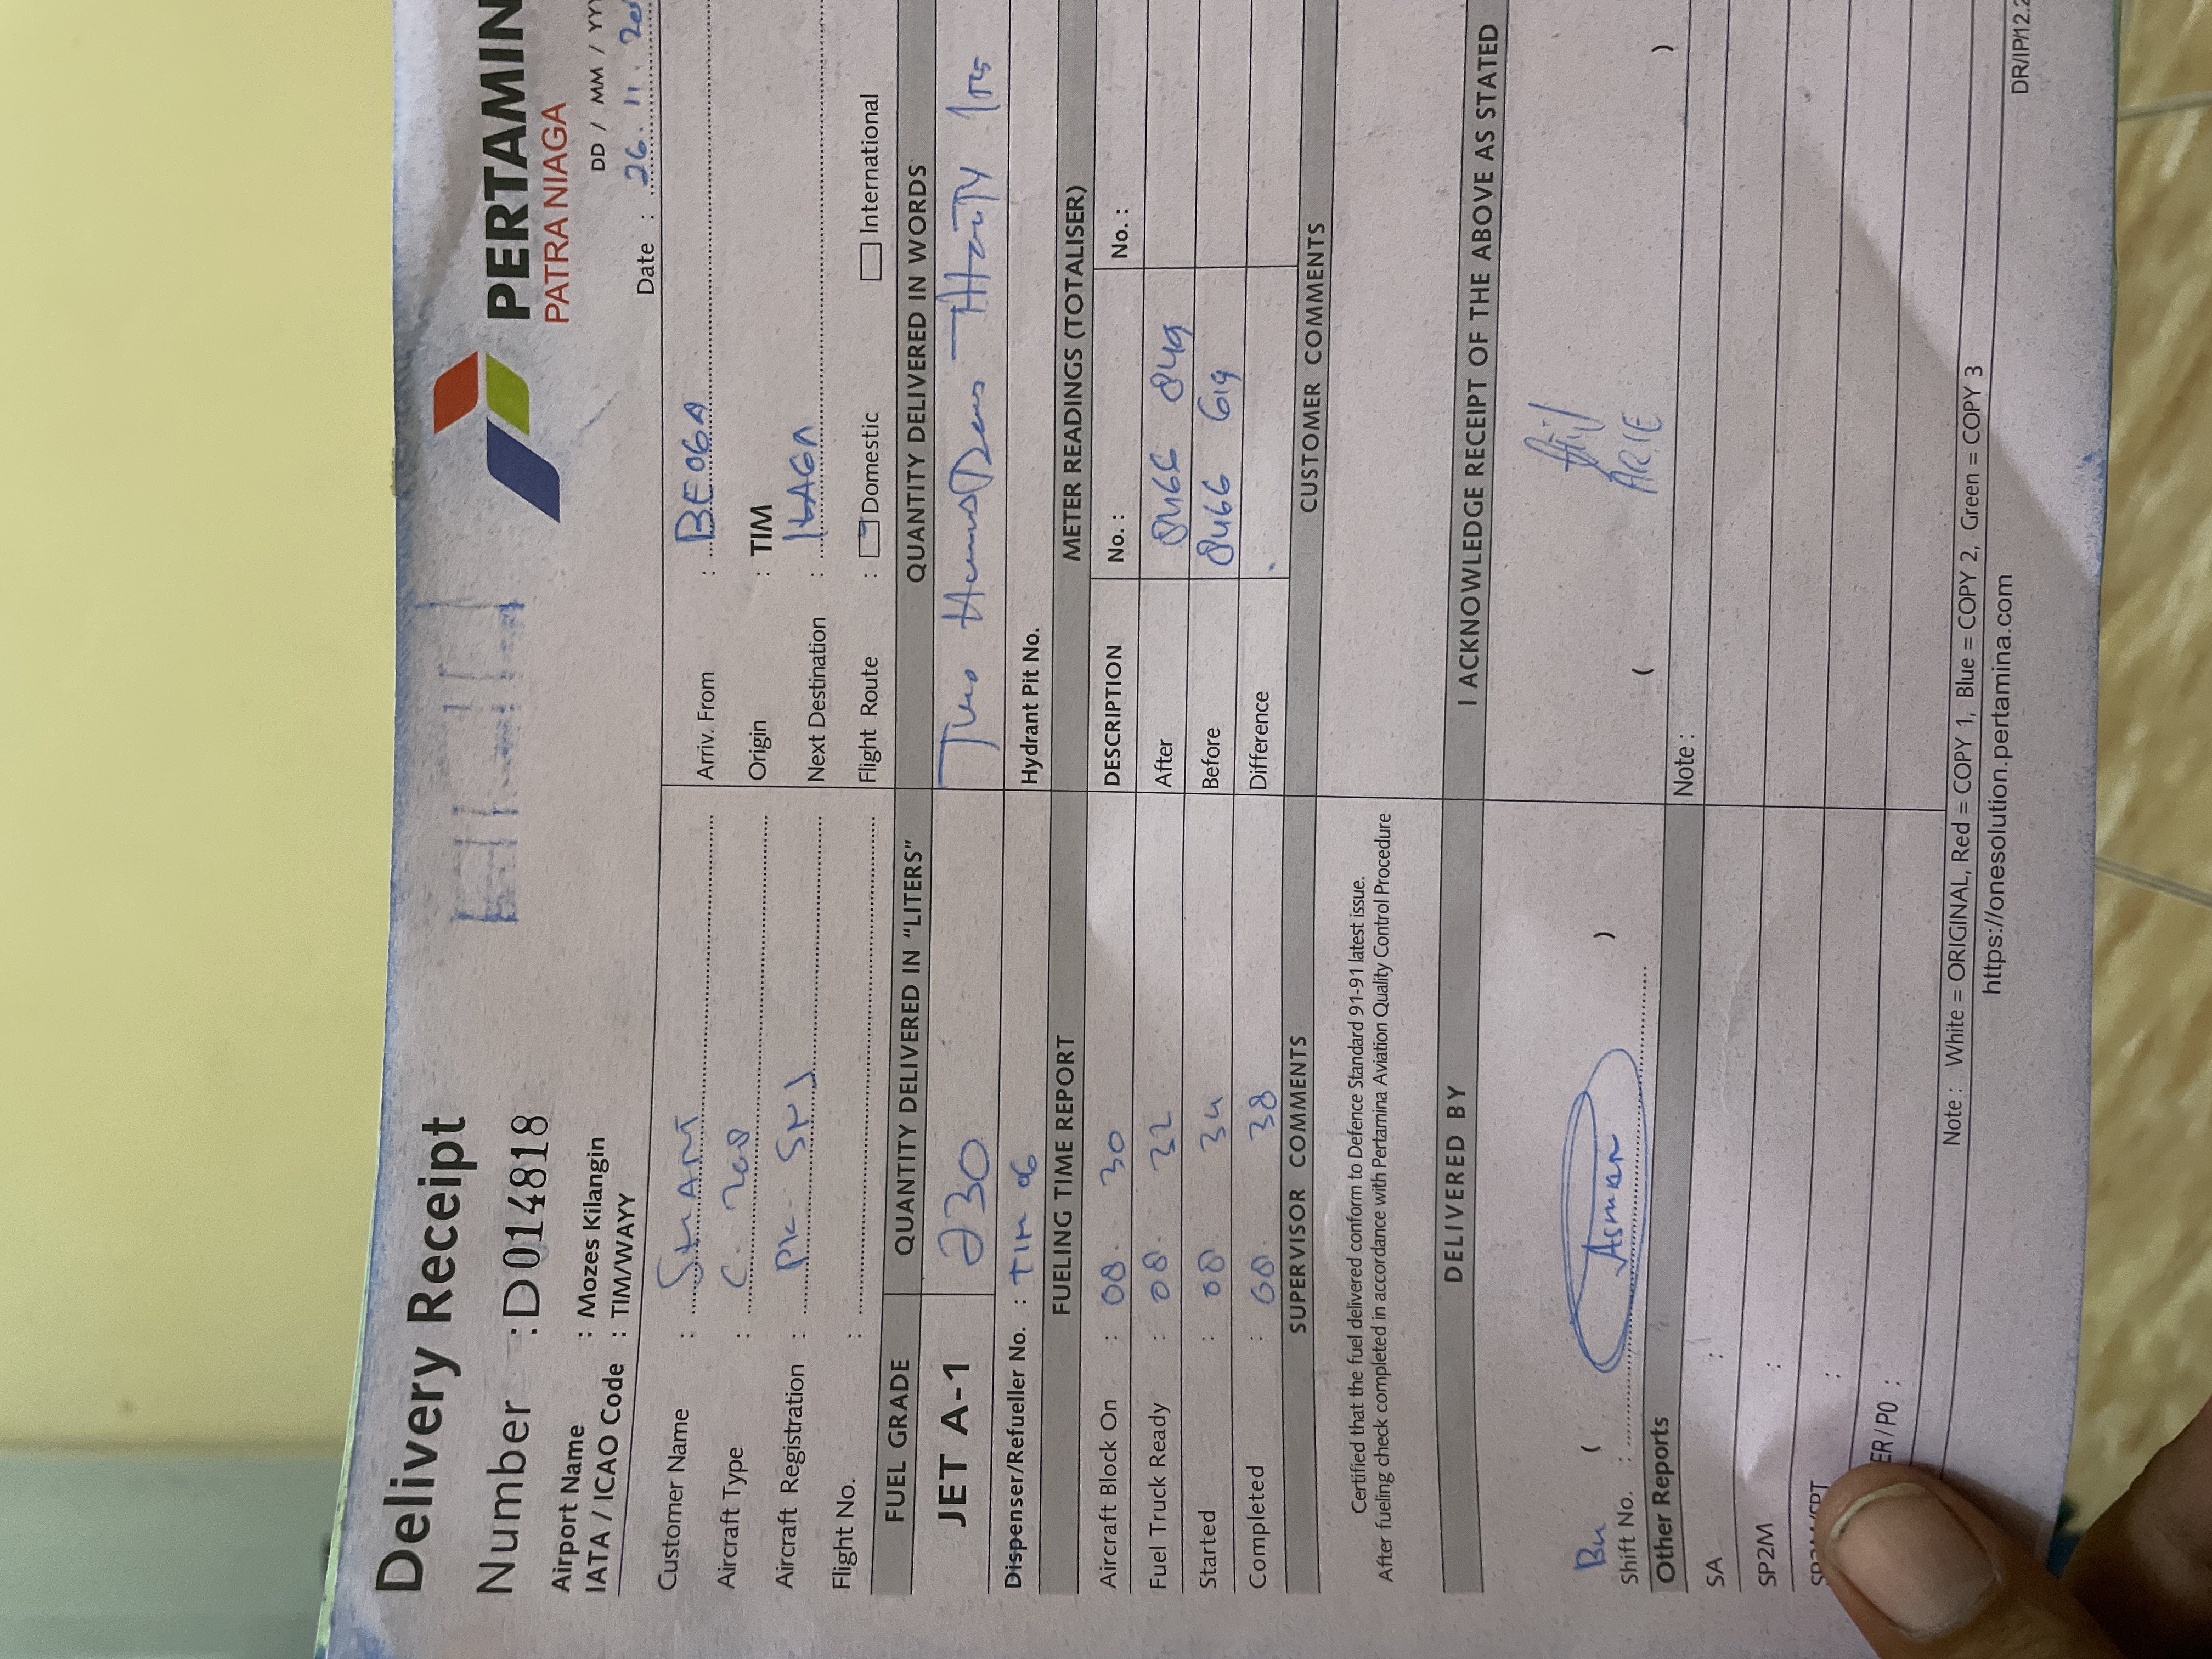 Delivery Receipt
PERTAMIN
PATRA NIAGA
Number : D014818
DD / MM / YY
Airport Name : Mozes Kilangin
IATA / ICAO Code : TIM/WAYY
Date : 26. 11.
Customer Name : SMART
Arriv. From : BEOGA
Aircraft Type : C. 208
Origin : TIM
Aircraft Registration : PK-
Next Destination : ILAGA
Flight No. :
Flight Route : Domestic International
FUEL GRADE QUANTITY DELIVERED IN "LITERS" QUANTITY DELIVERED IN WORDS
JET A-1 230 Two Hundred Thirty
Dispenser/Refueller No. : TIM 06 Hydrant Pit No.
FUELING TIME REPORT METER READINGS (TOTALISER)
DESCRIPTION No. : No. :
Aircraft Block On : 08. 30
After 8466 849
Fuel Truck Ready : 08. 32
Before 8466 619
Started : 08. 34
Difference
Completed : 08. 38
SUPERVISOR COMMENTS CUSTOMER COMMENTS
Certified that the fuel delivered conform to Defence Standard 91-91 latest issue.
After fueling check completed in accordance with Pertamina Aviation Quality Control Procedure
DELIVERED BY I ACKNOWLEDGE RECEIPT OF THE ABOVE AS STATED
( Asmar )
( ARIE )
Shift No. :
Other Reports Note :
SA :
SP2M :
ER / PO :
Note : White = ORIGINAL, Red = COPY 1, Blue = COPY 2, Green = COPY 3
https://onesolution.pertamina.com
DR/IP/12.2